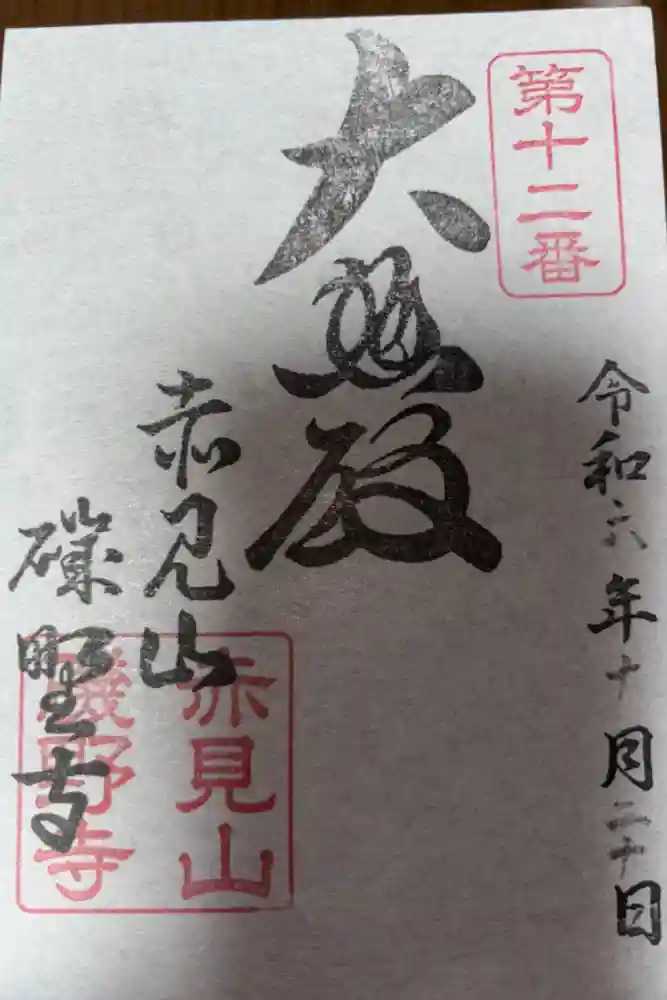 第十二番
令和六年十月二十日
大悲殿
赤見山
磯野寺
赤見山
磯野寺